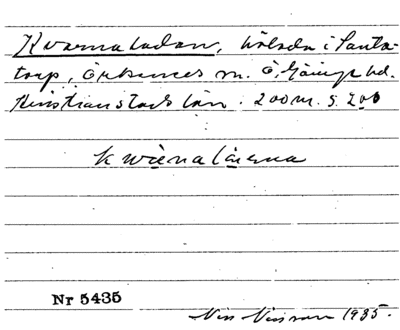 Kvarnaladan, hölada i Santa-
torp, Örkeneds sn. Ö. Göinge hd.
Kristianstads län. 200 m. s. 200
kwènalàena
Nr 5435
Nils Nilsson 1935.